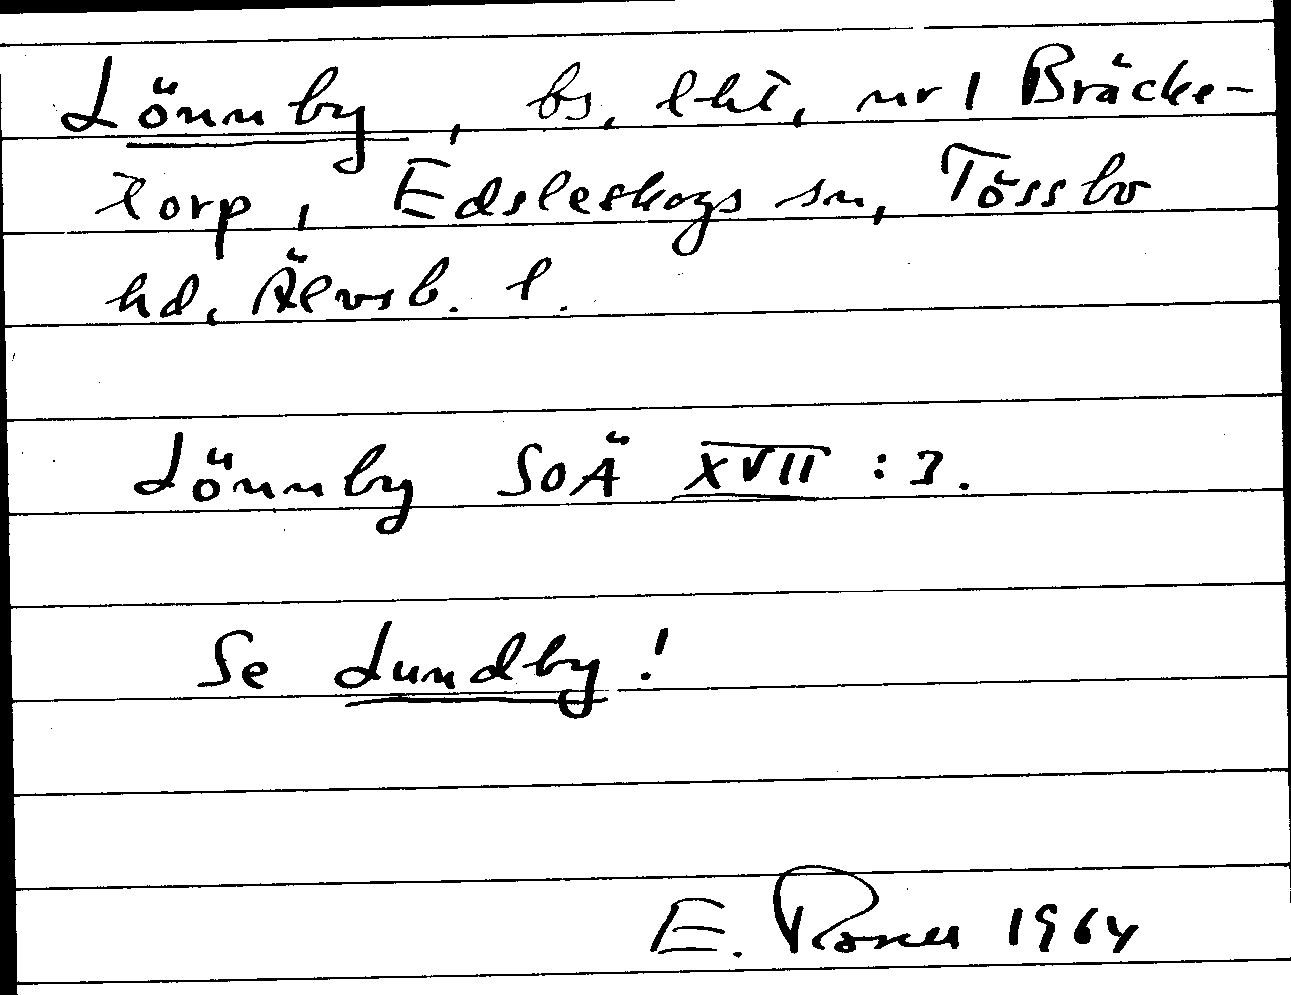 Lönnby, bs, lht, nr 1 Bräcke-
torp, Edsleskogs sn, Tössbo
hd, Älvsb. l.
Lönnby SOÄ XVII : 3.
Se Lundby!
E. Rosell 1964